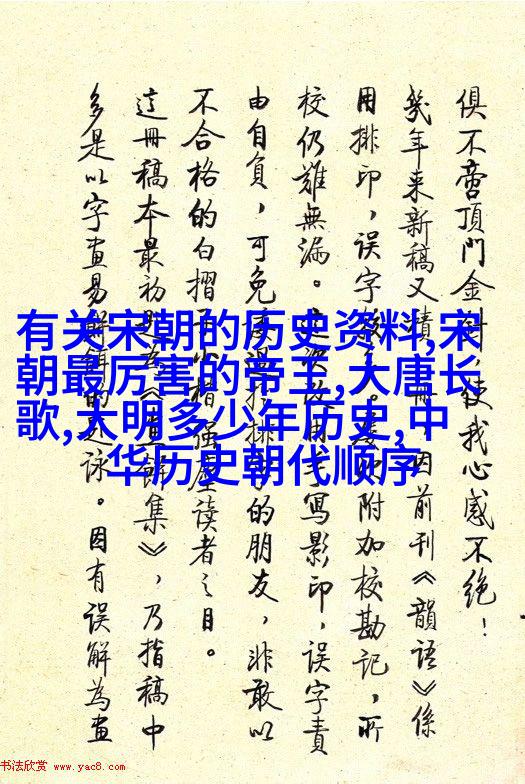 有关宋朝的历史资料,宋
朝最厉害的帝王,大唐长
歌,大明多少年历史,中
华历史朝代顺序
俱不啻頂門金針，使我心感不絕！
幾年來新稿又積一冊，因前刊《韻語》係
用排印，誤字 附加校勘記，所
校仍難無漏。這次改用手寫影印，誤字責
由自負，可免 的朋友，非敢以
不合格的白摺 小楷強塵讀者之目。
這冊稿本最初 集》，乃指稿中
多是以字畫易 詠。因有誤解為畫
书法欣赏 www.yac8.com